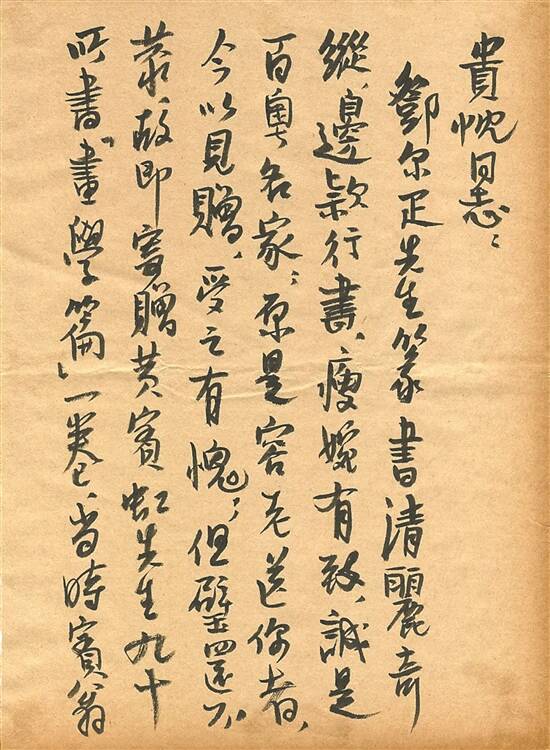 貴忱同志：
鄧尔疋先生篆書清麗奇
縱，邊款行書，瘦婉有致，誠是
百粤名家；原是容老送你者，
今以見贈，受之有愧；但璧還不
恭，故即寄贈黄賓虹先生九十
所書“畫學篇”一卷，當時賓翁